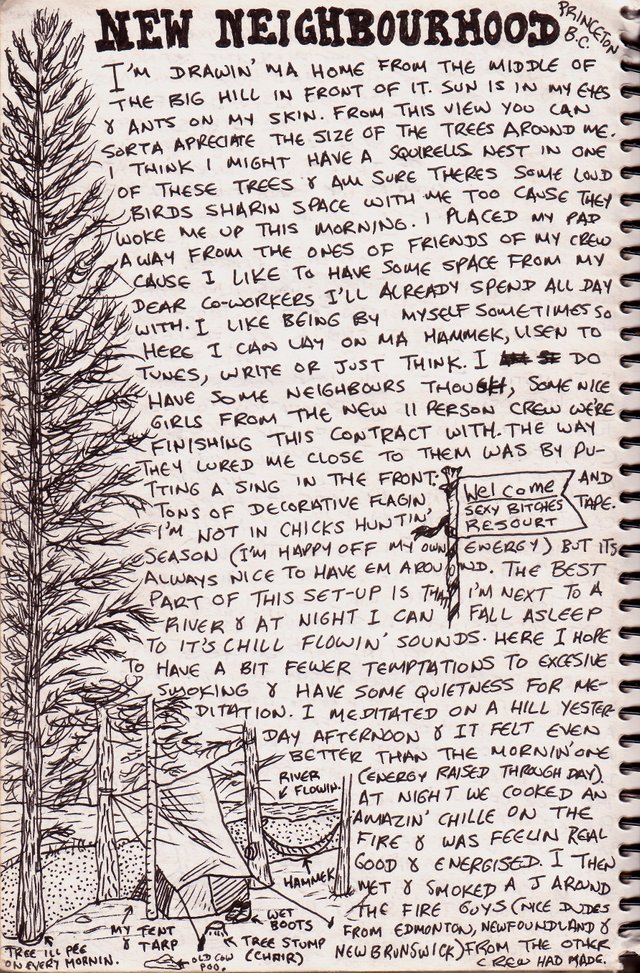 NEW NEIGHBOURHOOD
PRINCETON
B.C.
I'M DRAWIN' MA HOME FROM THE MIDDLE OF
THE BIG HILL IN FRONT OF IT. SUN IS IN MY EYES
& ANTS ON MY SKIN. FROM THIS VIEW YOU CAN
SORTA APRECIATE THE SIZE OF THE TREES AROUND ME.
I THINK I MIGHT HAVE A SQUIRELLS NEST IN ONE
OF THESE TREES & AM SURE THERES SOME LOUD
BIRDS SHARIN SPACE WITH ME TOO CAUSE THEY
WOKE ME UP THIS MORNING. I PLACED MY PAD
AWAY FROM THE ONES OF FRIENDS OF MY CREW
CAUSE I LIKE TO HAVE SOME SPACE FROM MY
DEAR CO-WORKERS I'LL ALREADY SPEND ALL DAY
WITH. I LIKE BEING BY MYSELF SOMETIMES SO
HERE I CAN LAY ON MA HAMMEK, LISEN TO
TUNES, WRITE OR JUST THINK. I DO
HAVE SOME NEIGHBOURS THOUGH, SOME NICE
GIRLS FROM THE NEW 11 PERSON CREW WE'RE
FINISHING THIS CONTRACT WITH. THE WAY
THEY LURED ME CLOSE TO THEM WAS BY PU-
TTING A SING IN THE FRONT: AND
Welcome
SEXY BITCHES
RESOURT
TONS OF DECORATIVE FLAGIN TAPE.
I'M NOT IN CHICKS HUNTIN'
SEASON (I'M HAPPY OFF MY OWN ENERGY) BUT ITS
ALWAYS NICE TO HAVE EM AROUND. THE BEST
PART OF THIS SET-UP IS THAT I'M NEXT TO A
RIVER & AT NIGHT I CAN FALL ASLEEP
TO IT'S CHILL FLOWIN' SOUNDS. HERE I HOPE
TO HAVE A BIT FEWER TEMPTATIONS TO EXCESIVE
SMOKING & HAVE SOME QUIETNESS FOR ME-
DITATION. I MEDITATED ON A HILL YESTER-
DAY AFTERNOON & IT FELT EVEN
BETTER THAN THE MORNIN' ONE
(ENERGY RAISED THROUGH DAY).
AT NIGHT WE COOKED AN
AMAZIN' CHILLE ON THE
FIRE & WAS FEELIN REAL
GOOD & ENERGISED. I THEN
MET & SMOKED A J AROUND
THE FIRE GUYS (NICE DUDES
FROM EDMONTON, NEWFOUNDLAND &
NEW BRUNSWICK) FROM THE OTHER
CREW HAD MADE.
RIVER
FLOWIN'
HAMMEK
WET
BOOTS
TREE STUMP
(CHAIR)
MY TENT
& TARP
OLD COW
POO.
TREE ILL PEE
ON EVERY MORNIN.